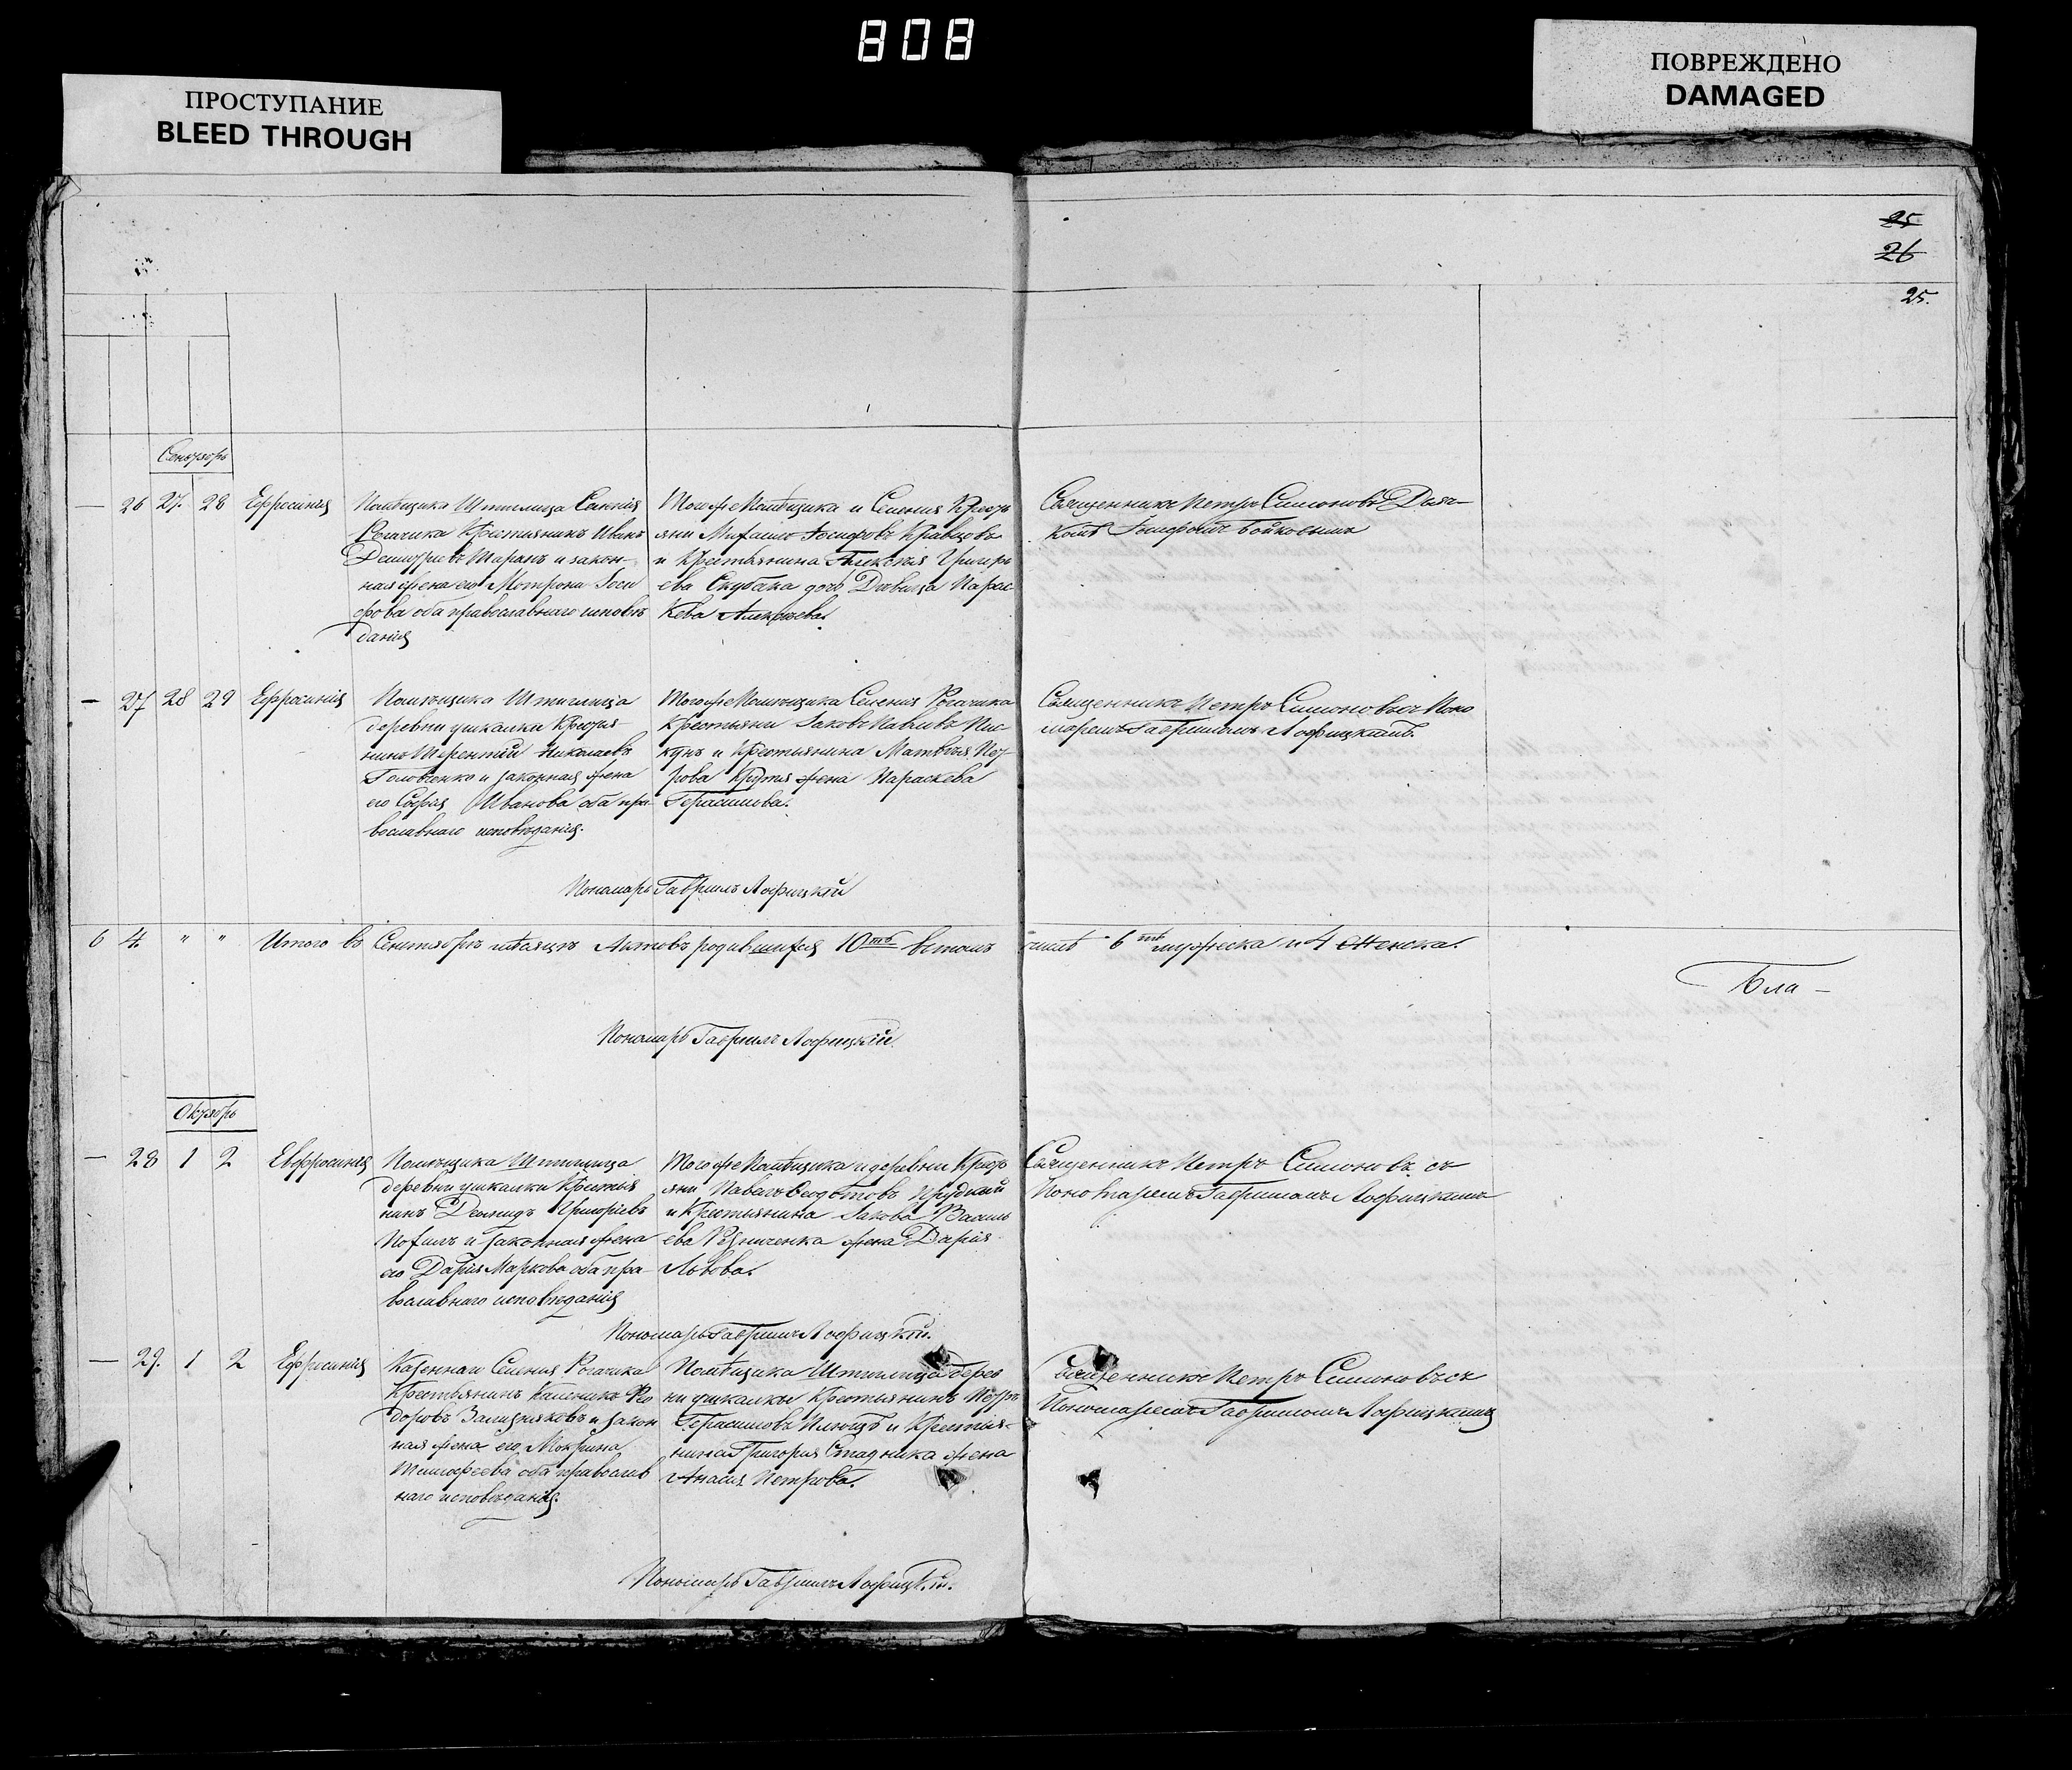 808
ПРОСТУПАНИЕ
BLEED THROUGH
ПОВРЕЖДЕНО
DAMAGED
25
26
25.
Сентябрь
— 26 27. 28 Ефросинія
Помѣщика Штиглица Селенія
Рогачика Крестьянинъ Иванъ
Шаранъ и закон-
ная жена его Мотрона Іоси
фова оба православнаго исповѣ
данія
Того же Помѣщика и Селенія Кресть
яни Михаилъ Іосифовъ Кравцовъ
и Крестьянина Алексѣя Григорь
ева Скубака дочь Дѣвица Парас-
кева Алексѣева.
Священникъ Петръ Симоновъ Дьяч-
комъ Бойковымъ
— 27 28 29 Ефросинія
Помѣщика Штиглица
деревни ушкалки Крестья
нинъ Терентій Николаевъ
Головченко и законная жена
его Софія Иванова оба пра-
вославнаго исповѣданія.
Того же Помѣщика Селенія Рогачика
Крестьяни Іаковъ Павловъ Пис-
кунъ и Крестьянина Матвѣя Пет-
рова жена Параскева
Герасимова.
Священникъ Петръ Симоновъ съ Поно
маремъ Гавріиломъ Лофицкимъ.
Пономарь Гавріилъ Лофицкій
6 4. " " Итого въ Сентябрѣ мѣсяцѣ Актовъ родившихся 10ть въ томъ числѣ 6ть мужеска и 4 женска.
Бла —
Пономарь Гавріилъ Лофицкій.
Октябрь
— 28 1 2 Евфросинія
Помѣщика Штиглица
деревни ушкалки Крестья
нинъ Демидъ Григорьевъ
и законная жена
его Дарія Маркова оба пра-
вославнаго исповѣданія
Того же Помѣщика и деревни Кресть
яни Павелъ Ѳедотовъ Прудкий
и Крестьянина Іакова Василь
ева Резниченка жена Дарія
Львова.
Священникъ Петръ Симоновъ съ
Пономаремъ Гавріиломъ Лофицкимъ
Пономарь Гавріилъ Лофицкій.
— 29. 1 2 Ефросинія
Казеннаго Селенія Рогачика
Крестьянинъ Ѳео
доровъ Зализняковъ и закон
ная жена его Мокрина
Тимофеева оба православ
наго исповѣданія.
Помѣщика Штиглица дерев
ни ушкалки Крестьянинъ Петръ
Герасимовъ и Крестья-
нина Григорія Стадника жена
Петрова.
Священникъ Петръ Симоновъ съ
Пономаремъ Гавріиломъ Лофицкимъ
Пономарь Гавріилъ Лофицкій.